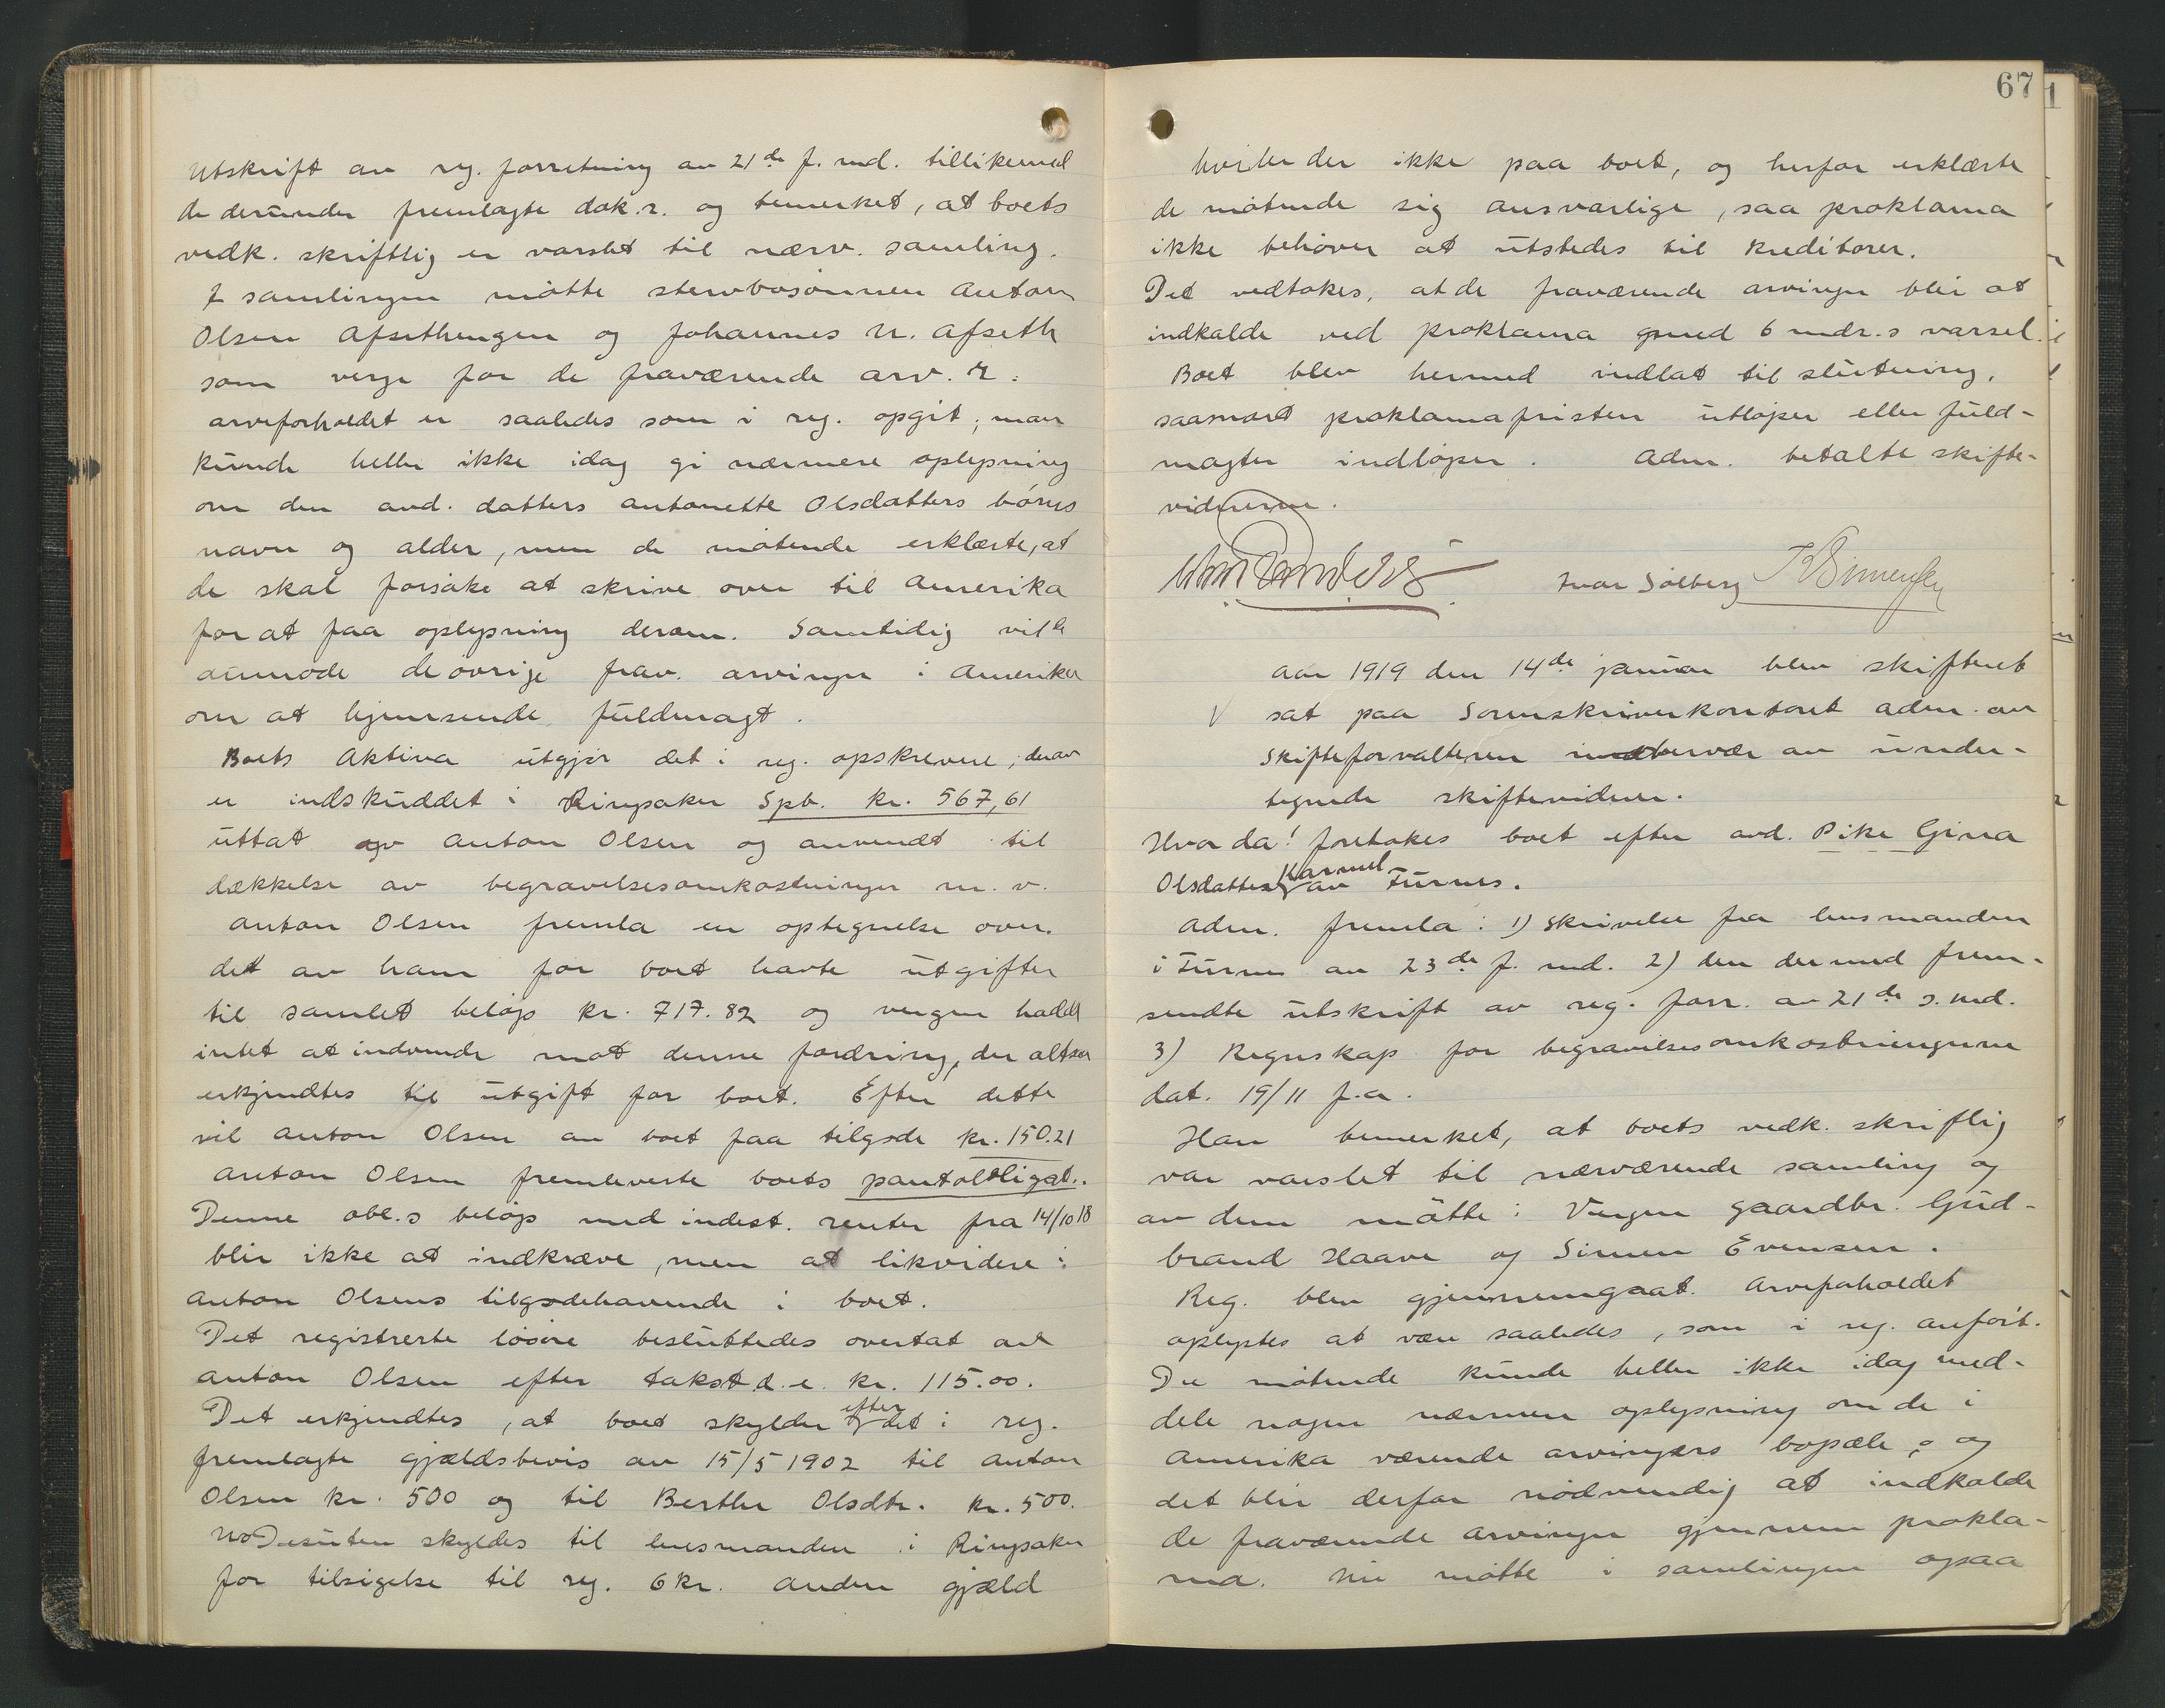 Utskrift av reg. forretning av 21de f. md. tillikemed
de derunder fremlagte dok.r. og bemerket, at boets
vedk. skriftlig er varslet til nærv. samling.
I samlingen møtte stervbosønnen Anton
Olsen Afsethengen og Johannes N. Afseth
som verge for de fraværende arv. r:
arveforholdet er saaledes som i reg. opgit; man
kunde heller ikke idag gi nærmere oplysning
om den avd. datters Antonette Olsdatters børns
navn og alder, men de møtende erklærte, at
de skal forsøke at skrive over til Amerika
for at faa oplysning derom. Samtidig vil de
anmode de øvrige frav. arvinger i Amerika
om at hjemsende fuldmagt.
Boets Aktiva utgjør det i reg. opskrevne; derav
er indskuddet i Ringsaker Spb. kr. 567,61
uttat av Anton Olsen og anvendt til
dækkelse av begravelsesomkostninger m. v.
Anton Olsen fremla en optegnelse over
det av ham for boet havte utgifter
til samlet beløp kr. 717.82 og vergen hadde
intet at indvende mot denne fordring, der altsaa
erkjendtes til utgift for boet. Efter dette
vil Anton Olsen av boet faa tilgode kr. 150.21
Anton Olsen fremleverte boets pantobligat..
Denne obl.s beløp med indest. renter fra 14/10 18
blir ikke at indkræve, men at likvidere i
Anton Olsens tilgodehavende i boet.
Det registrerte løsøre besluttedes overtat av
Anton Olsen efter takst d. e. kr. 115.00.
Det erkjendtes, at boet skylder efter det i reg.
fremlagte gjældsbevis av 15/5 1902 til Anton
Olsen kr. 500 og til Berthe Olsdtr. kr. 500.
Desuten skyldes til lensmanden i Ringsaker
for tilsigelse til reg. 6 kr. Anden gjæld
67
hviler der ikke paa boet, og herfor erklærte
de møtende sig ansvarlige, saa proklama
ikke behøver at utstedes til kreditorer.
Det vedtokes, at de fraværende arvinger blir at
indkalde ved proklama med 6 mdr.s varsel.
Boet blev hermed indlat til slutning,
saasnart proklamafristen utløper eller fuld-
magter indløper. Adm. betalte skifte-
vidnerne.
Ivar Solberg
Aar 1919 den 14de januar blev skifteret
V sat paa Sorenskriverkontoret adm. av
Skifteforvalteren i nærvær av under-
tegnede skiftevidner.
Hvor da! foretokes boet efter avd. Pike Gina
Olsdatter Karmel av Furnes.
Adm. fremla: 1) Skrivelse fra lensmanden
i Furnes av 23de f. md. 2) den dermed frem-
sendte utskrift av reg. forr. av 21de s. md.
3) Regnskap for begravelsesomkostningerne
dat. 19/11 f.a.
Han bemerket, at boets vedk. skriftlig
var varslet til nærværende samling og
av dem møtte: Vergen gaardbr. Gud-
brand Haave og Simen Evensen.
Reg. blev gjennemgaat. Arveforholdet
oplystes at være saaledes, som i reg. anført.
De møtende kunde heller ikke idag med-
dele nogen nærmere oplysning om de i
Amerika værende arvingers bopæle, og
det blir derfor nødvendig at indkalde
de fraværende arvinger gjennem prokla-
ma. Nu møtte i samlingen ogsaa